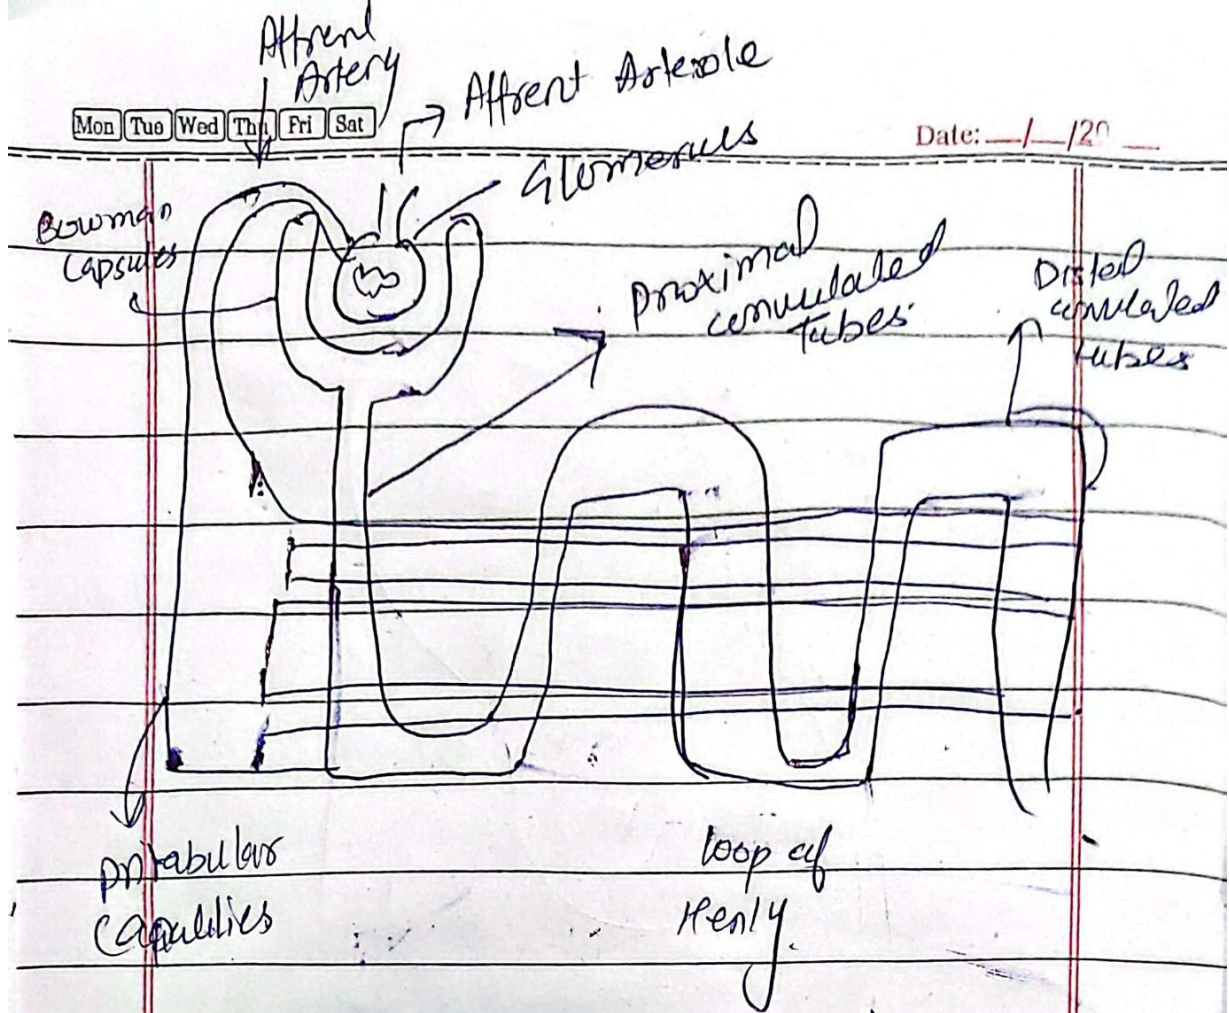 Affrent
Artery
Affrent Arteriole
Mon Tue Wed Thu Fri Sat
Date: __/__/20 __
Glomeruls
Bowman
Capsules
Proximal
convulated
Tubes
Distal
convulated
tubes
Pritabular
Capallilies
loop of
Henly.